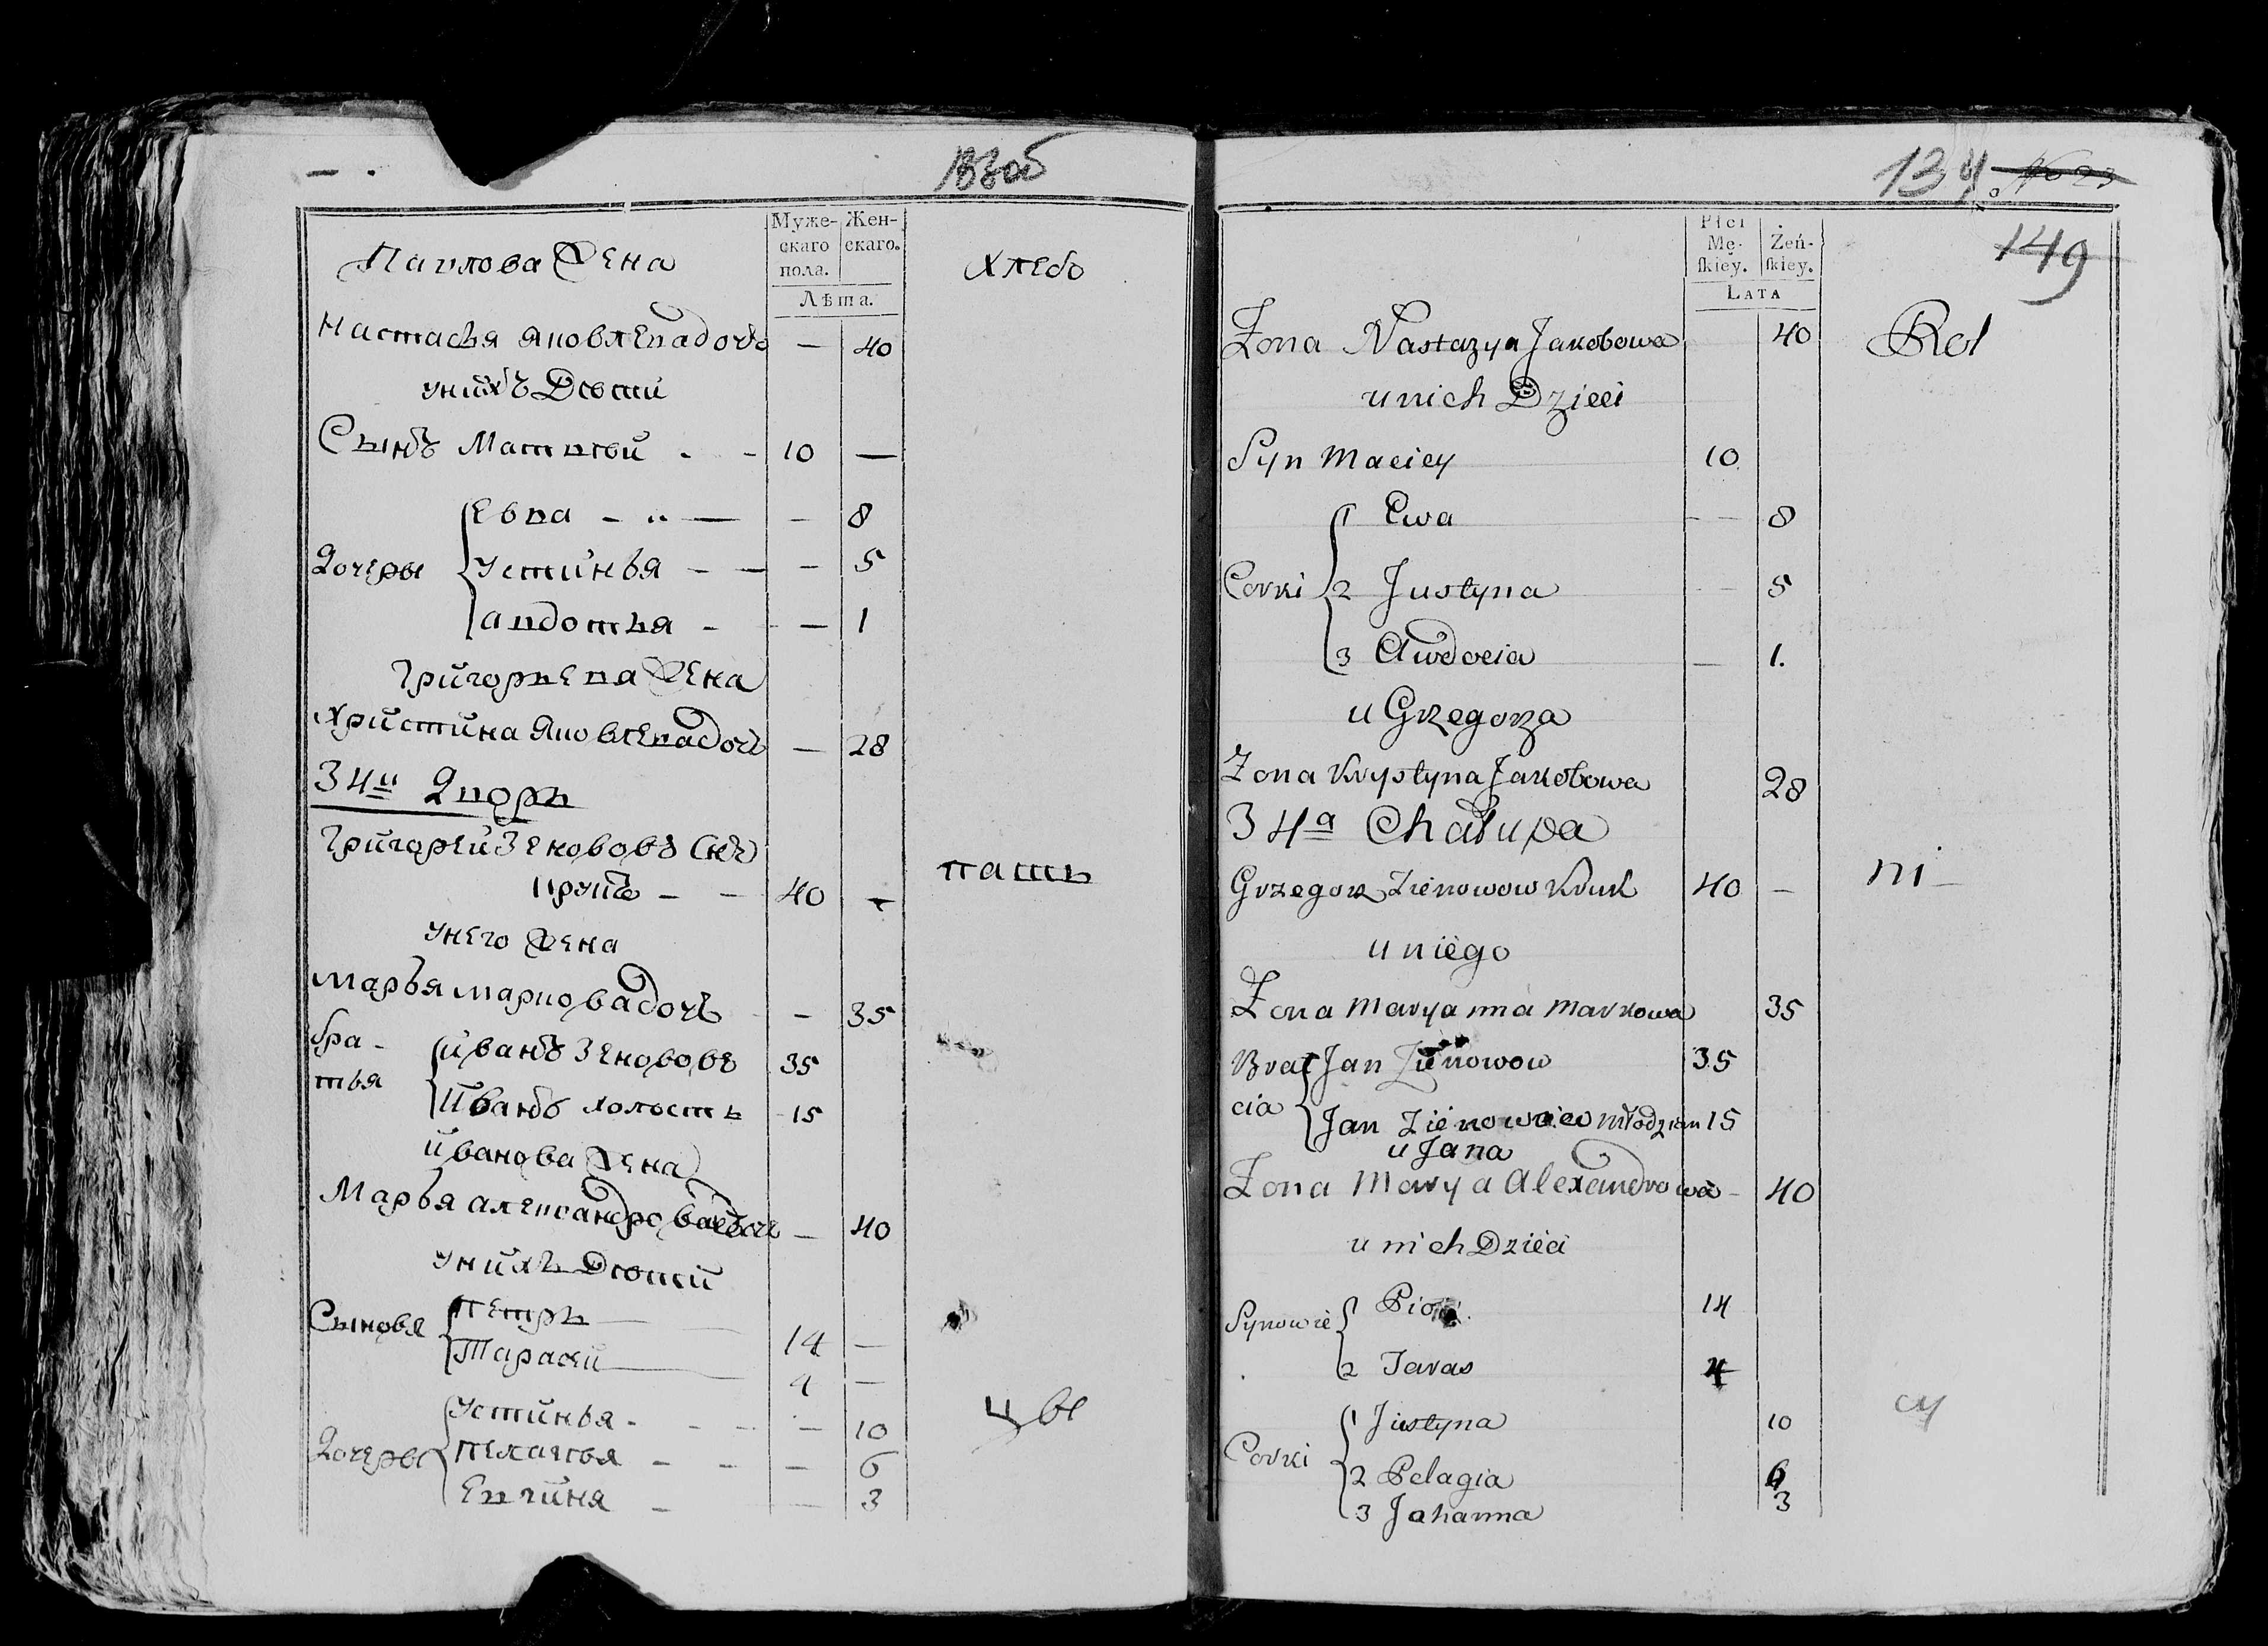 133об
Муже- Жен-
скаго скаго.
пола.
Лѣта.
Павлова Жена
хлебо
Настасья Яковлева дочь — 40
у нихъ Дѣти
Сынъ Матвѣй . - 10 —
Евва - „ — - 8
Дочеры Устинья - — - 5
Авдотья - - — 1
Григорьева Жена
Христина Яковлева дочь — 28
34й Дворъ
Григорей Зенововъ Снъ
Крукъ - - 40 -
пашь
у него Жена
Марья Маркова дочь - 35
Бра- Иванъ Зенововъ 35
тья Иванъ холостъ 15
Иванова Жена
Марья Александрова дочь — 40
у нихъ Дѣтей
Сыновя Петръ 14 —
Тарасей 4 —
цы
Устинья - 10
Дочеры Пелагѣя - - - 6
Евгиня - 3
134 No 23
149
Płci
Mę- Żeń-
skiey. skiey.
LATA
Żona Nastazya Jakobowa 40
Rol
u nich Dzieci
Syn Maciey 10
1 Ewa 8
Corki 2 Justyna 5
3 Awdocia 1.
u Grzegorza
Żona Krystyna Jakobowa 28
34a Chałupa
Grzegorz Zienowow Kruk 40 —
ni-
u niego
Żona Maryanna Markowa 35
Bra Jan Zienowow 35
cia Jan Zienowiew młodzian 15
u Jana
Żona Marya Alexandrowa - 40
u nich Dzieci
Synowie Piotr 14
2 Taras 4
1 Justyna 10
cy
Corki 2 Pelagia 6
3 Johanna 3